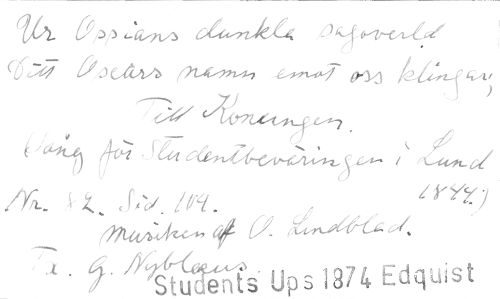 Ur Ossians dunkla sagoverld
Ditt Oscars namn emot oss klingar,
Till Konungen.
Sång för Studentbeväringen i Lund
1844.)
Nr. 82. Sid. 104.
musiken af O. Lindblad.
Tx. G. Nyblæus.
Students Ups 1874 Edquist